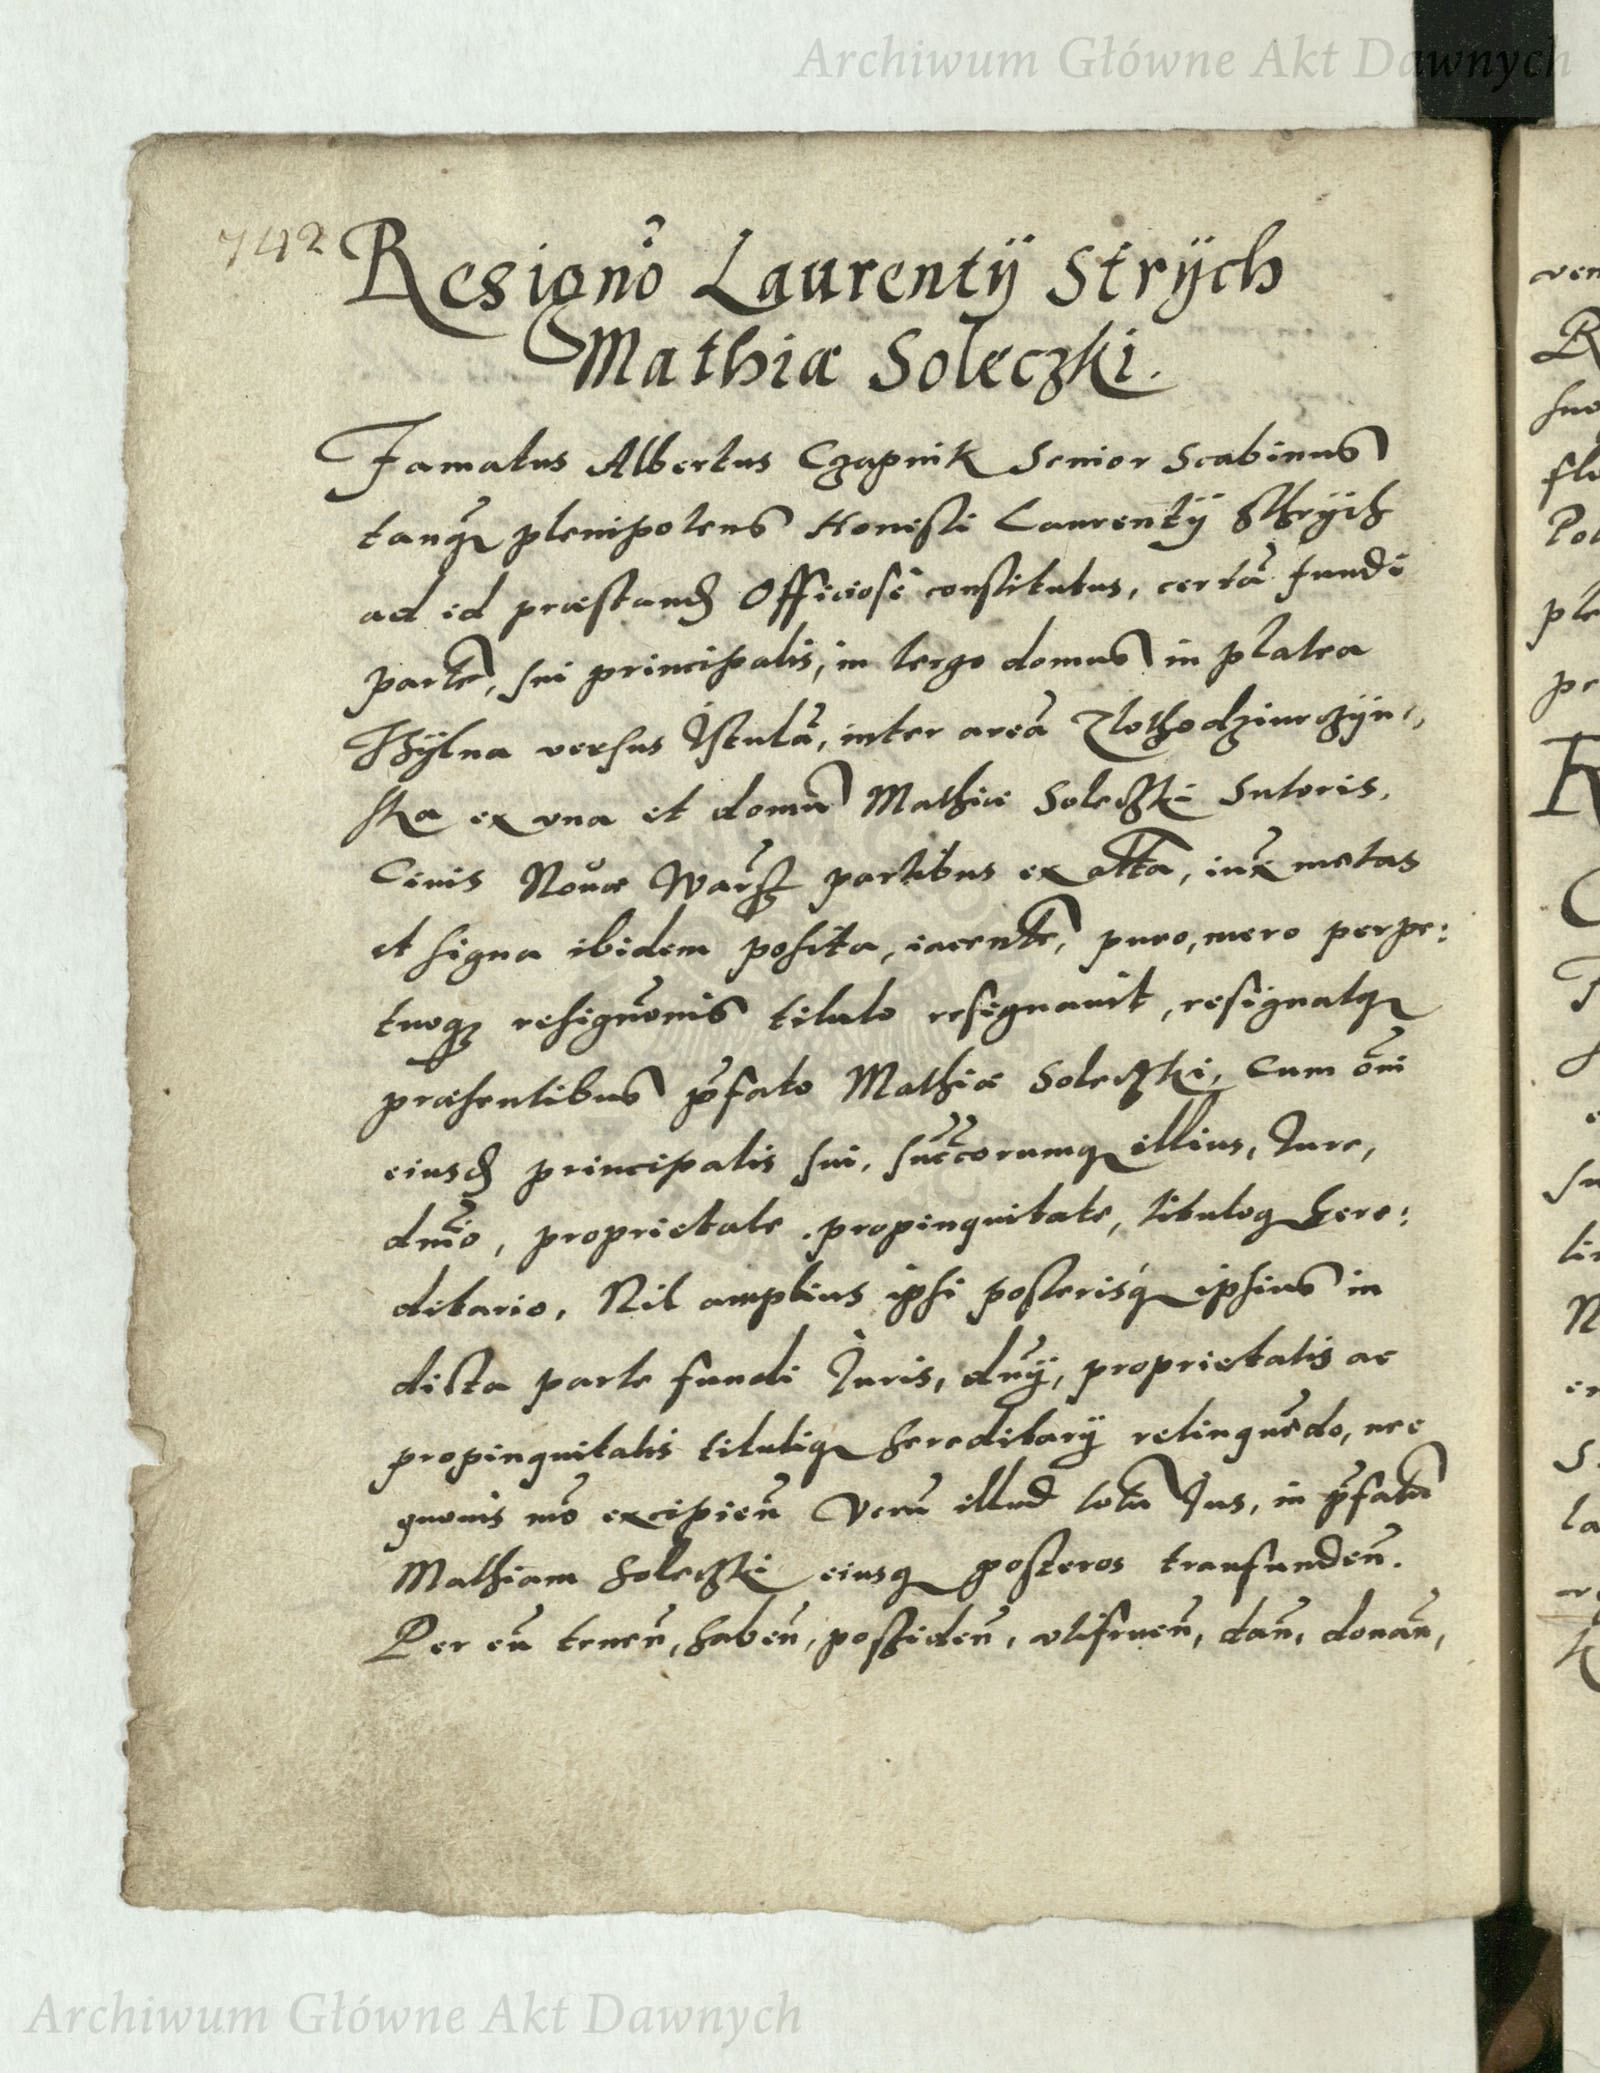 Archiwum Główne Akt Dawnych
742
Resigno Laurentÿ Strÿch
Mathiæ Soleczki.
Famatus Albertus Czapnik Senior Scabinus
tanq̃ plenipotens Honesti Laurentÿ Sthrÿch
ad id præstand Officiose constitutus, certã fundi
partẽ, sui principalis, in tergo domus in platea
Thÿlna versus Istulã, inter areã Zlothodziurczÿn-
ska ex una et domũ Mathiæ Soleczki Sutoris,
Civis Novæ Warsz partibus ex altã, iux metas
et signa ibidem posita, iacentẽ, puro, mero perpe:
tuoq resignonis titulo resignavit, resignatq
præsentibus pfato Mathiæ Soleczki, Cum oni
eiusd principalis sui, succorumq illius, Iure,
dnio, proprietate, propinquitate, tituloq here:
ditario, Nil amplius ipsi posterisq ipsius in
dicta parte fundi Iuris, dnÿ, proprietatis ac
propinquitatis tituliq hereditarÿ relinquẽdo, nec
quovis mo excipieñ Verũ illud totũ Ius, in pfatũ
Mathiam Soleczki eiusq posteros transfundeñ.
Per eũ teneñ, habeñ, possideñ, utifrueñ, dañ, donañ,
Archiwum Główne Akt Dawnych